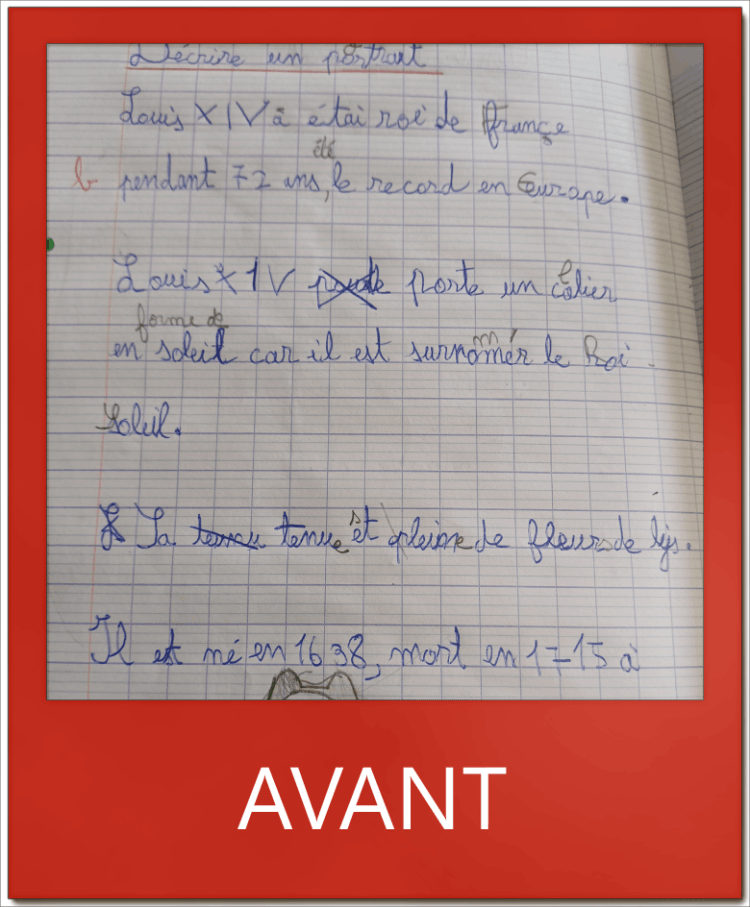 Décrire un portrait
Louis XIV à étai roi de françe
été
pendant 72 ans, le record en Europe.
Louis XIV porte un colier
forme de
en soleil car il est surnommér le Roi
Soleil.
Sa tenue est pleine de fleur de lys.
Il est né en 1638, mort en 1715 à
AVANT